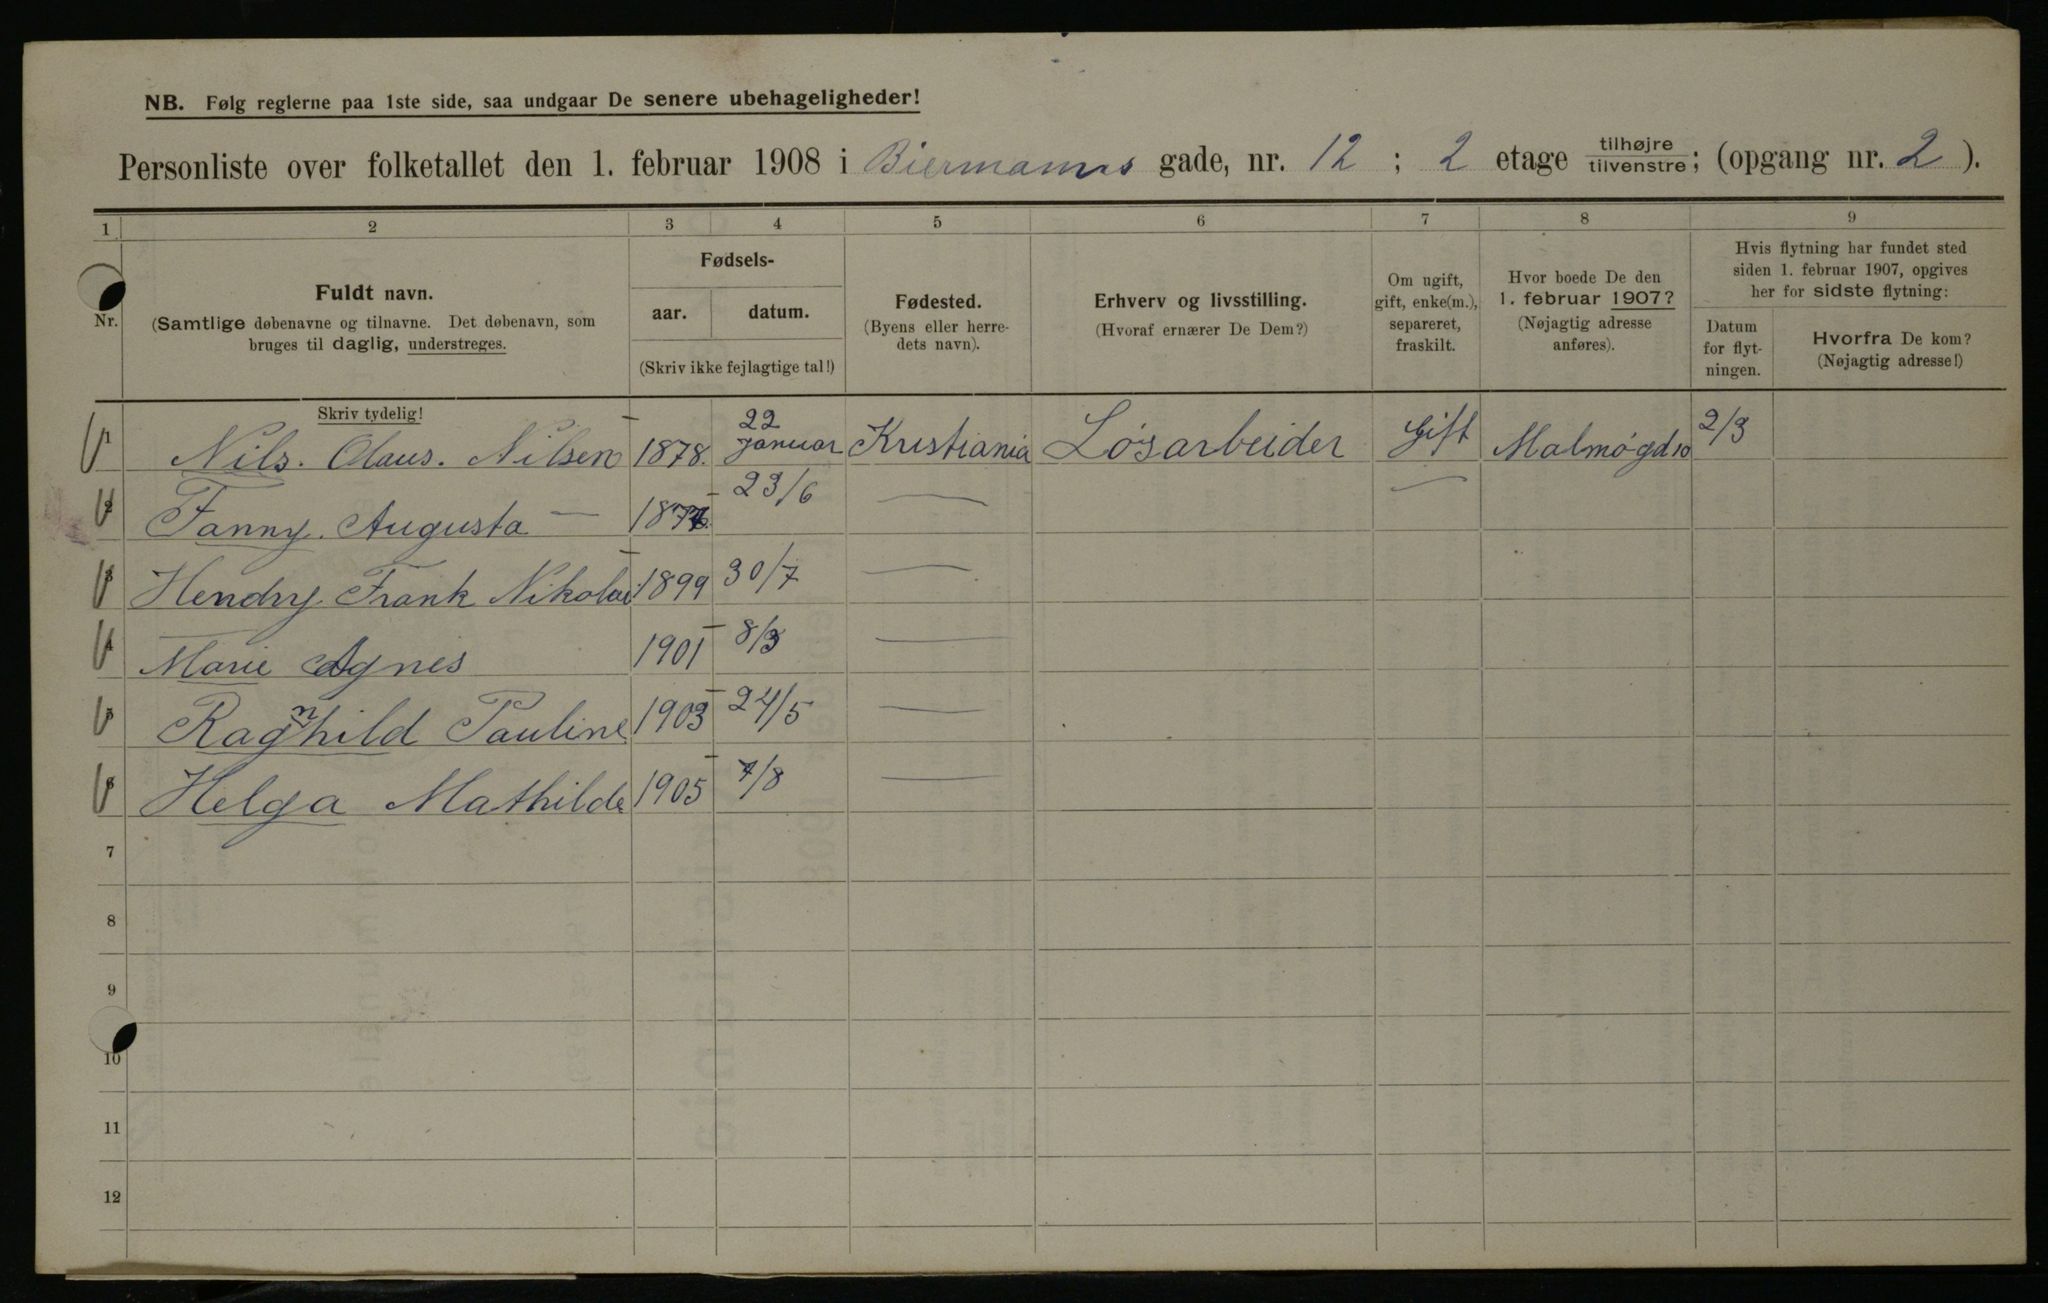 NB. Følg reglerne paa 1ste side, saa undgaar De senere ubehageligheder!
Personliste over folketallet den 1. februar 1908 i Biermanns gade, nr. 12 ; 2 etage tilhøjre/tilvenstre; (opgang nr. 2 ).
1 2 3 4 5 6 7 8 9
Nr.
Fuldt navn.
(Samtlige døbenavne og tilnavne. Det døbenavn, som
bruges til daglig, understreges.
Skriv tydelig!
Fødsels-
aar. datum.
(Skriv ikke fejlagtige tal!)
Fødested.
(Byens eller herre-
dets navn).
Erhverv og livsstilling.
(Hvoraf ernærer De Dem?)
Om ugift,
gift, enke(m.),
separeret,
fraskilt.
Hvor boede De den
1. februar 1907?
(Nøjagtig adresse
anføres).
Hvis flytning har fundet sted
siden 1. februar 1907, opgives
her for sidste flytning:
Datum
for flyt-
ningen.
Hvorfra De kom?
(Nøjagtig adresse!)
1 Nils. Olaus. Nilsen 1878. 22 januar Kristiania Løsarbeider Gift Malmøgd 10 2/3
2 Fanny. Augusta — 23/6 — —
3 Hendry Frank Nikolai 1899 30/7 —
4 Marie Agnes 1901 8/3 —
5 Ragnhild Pauline 1903 24/5 —
6 Helga Mathilde 1905 7/8 —
7
8
9
10
11
12